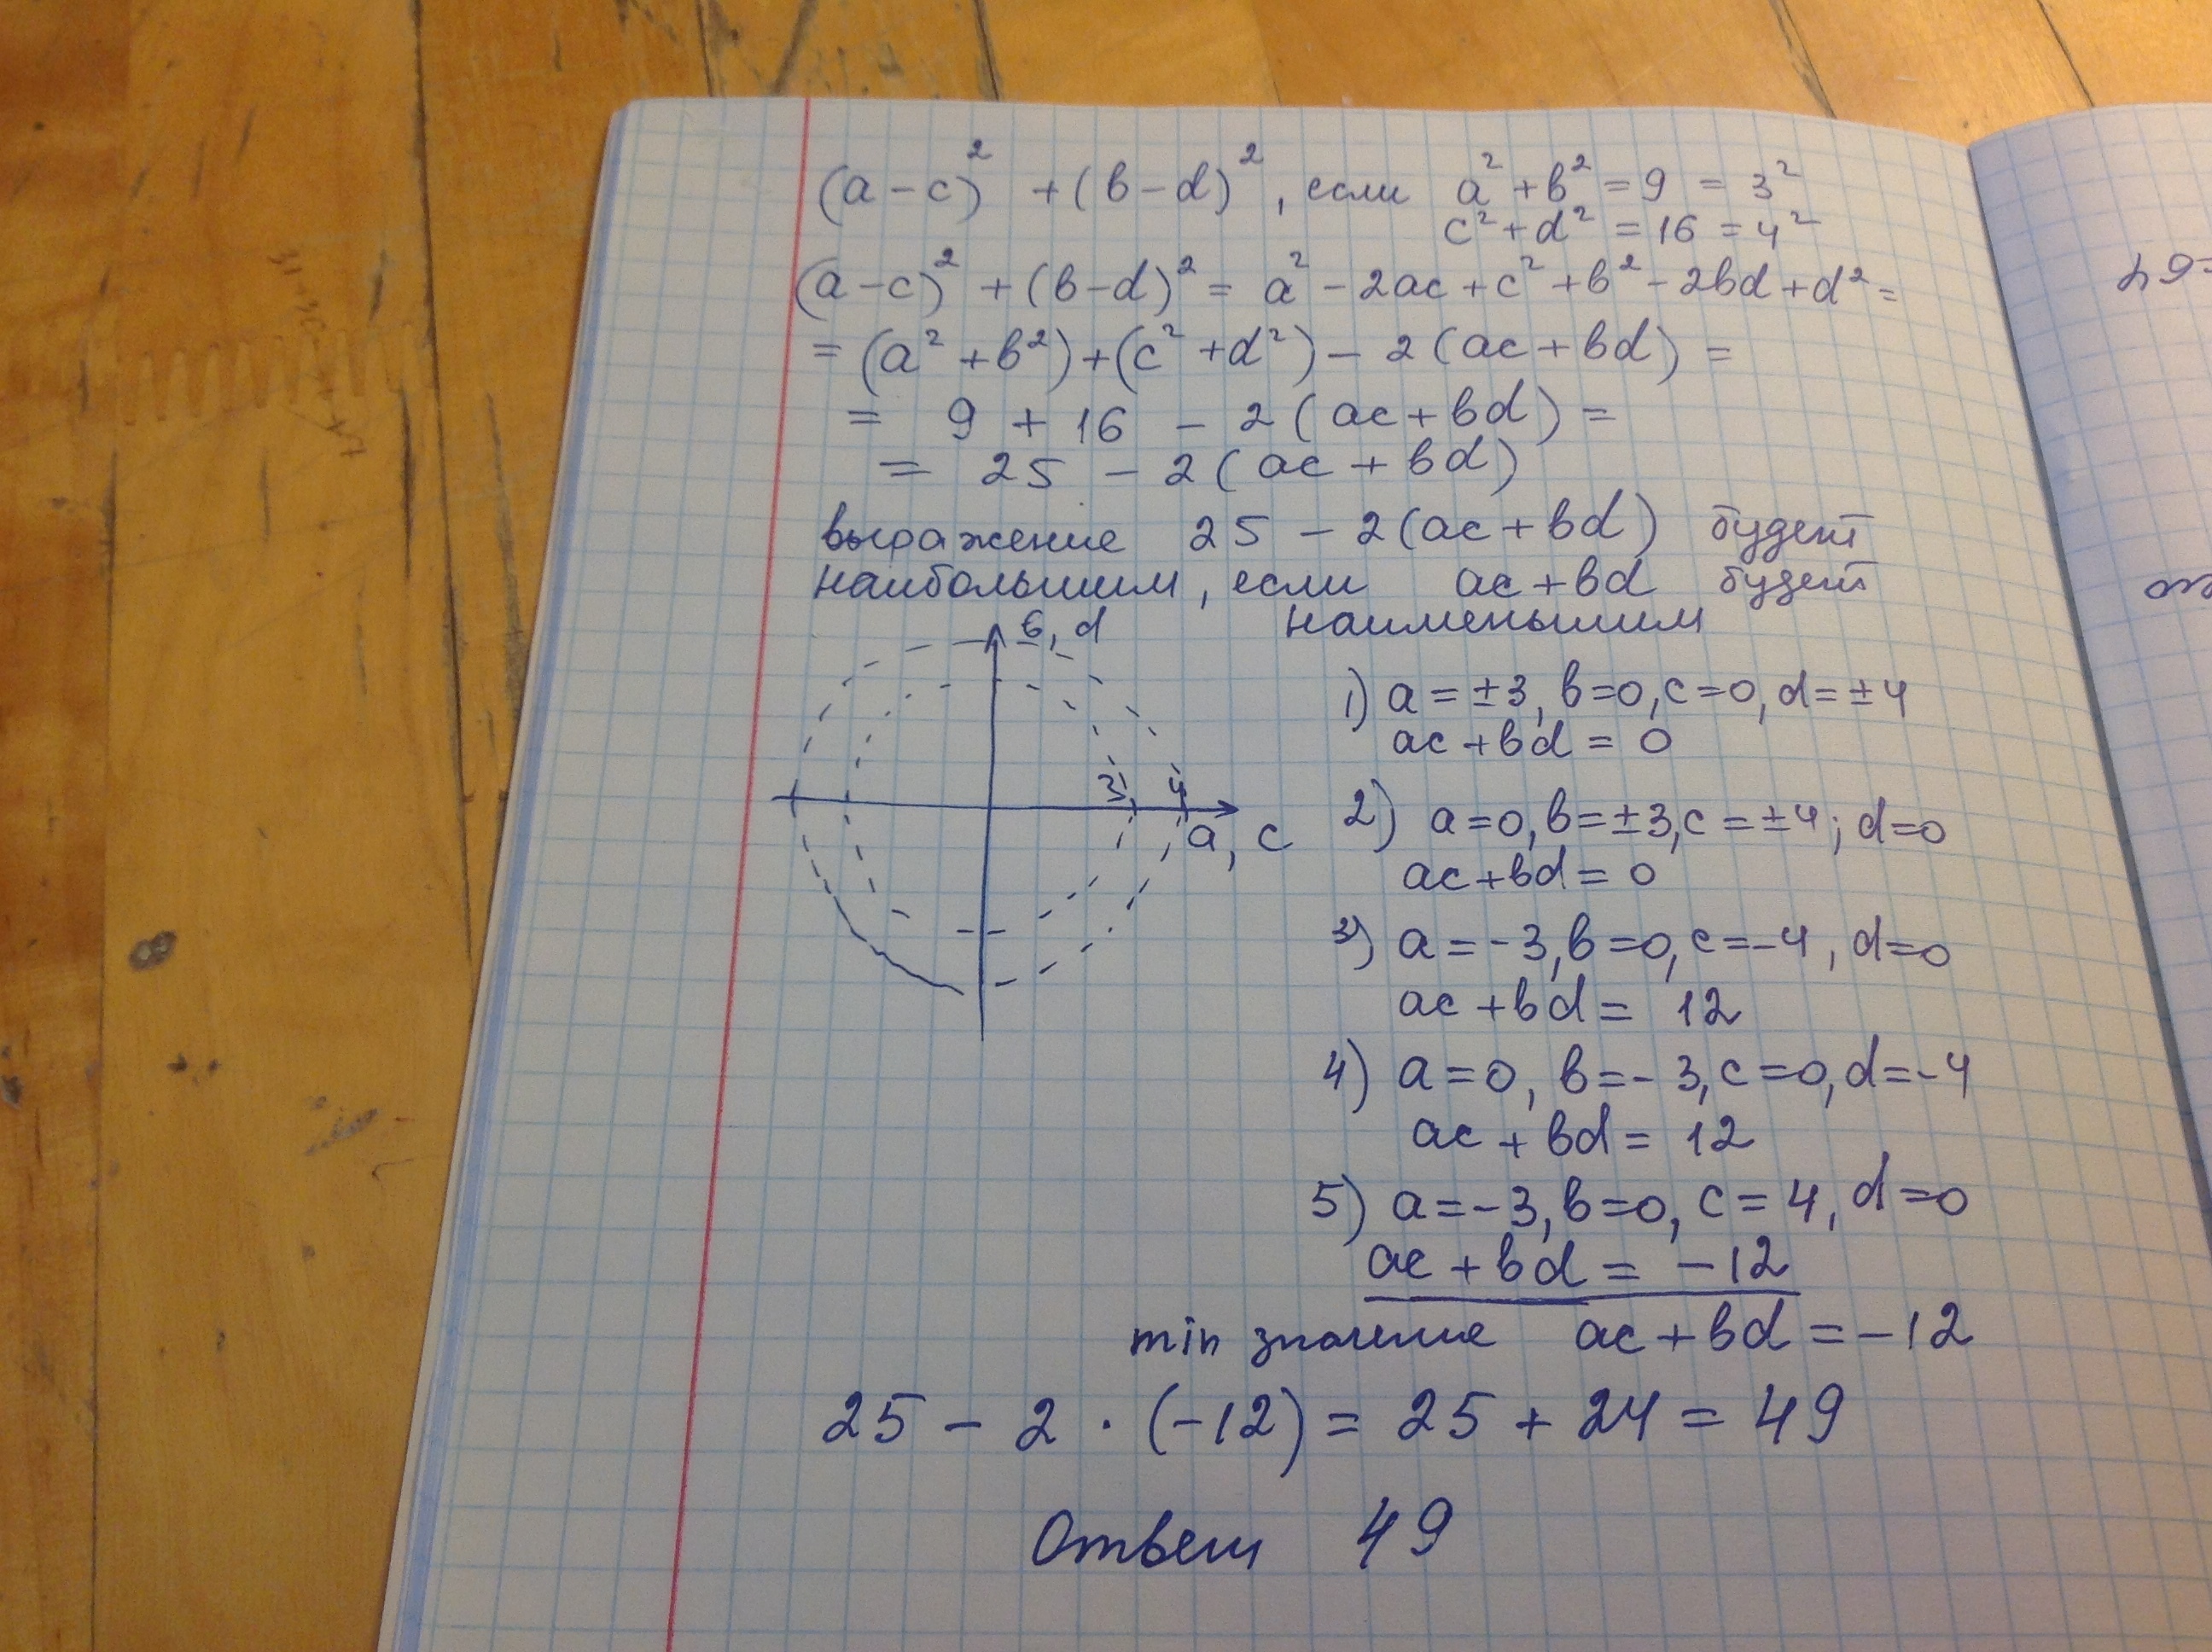 (a-c)² + (b-d)², если a² + b² = 9 = 3²
c² + d² = 16 = 4²
(a-c)² + (b-d)² = a² - 2ac + c² + b² - 2bd + d² =
= (a² + b²) + (c² + d²) - 2(ac + bd) =
= 9 + 16 - 2(ac + bd) =
= 25 - 2(ac + bd)
выражение 25 - 2(ac + bd) будет
наибольшим, если ac + bd будет
наименьшим
b, d
3 4
a, c
1) a = ±3, b=0, c=0, d=±4
ac + bd = 0
2) a=0, b=±3, c=±4; d=0
ac+bd = 0
3) a = -3, b=0, c=-4, d=0
ac + bd = 12
4) a=0, b=-3, c=0, d=-4
ac + bd = 12
5) a=-3, b=0, c=4, d=0
ac + bd = -12
min значение ac + bd = -12
25 - 2 · (-12) = 25 + 24 = 49
Ответ 49